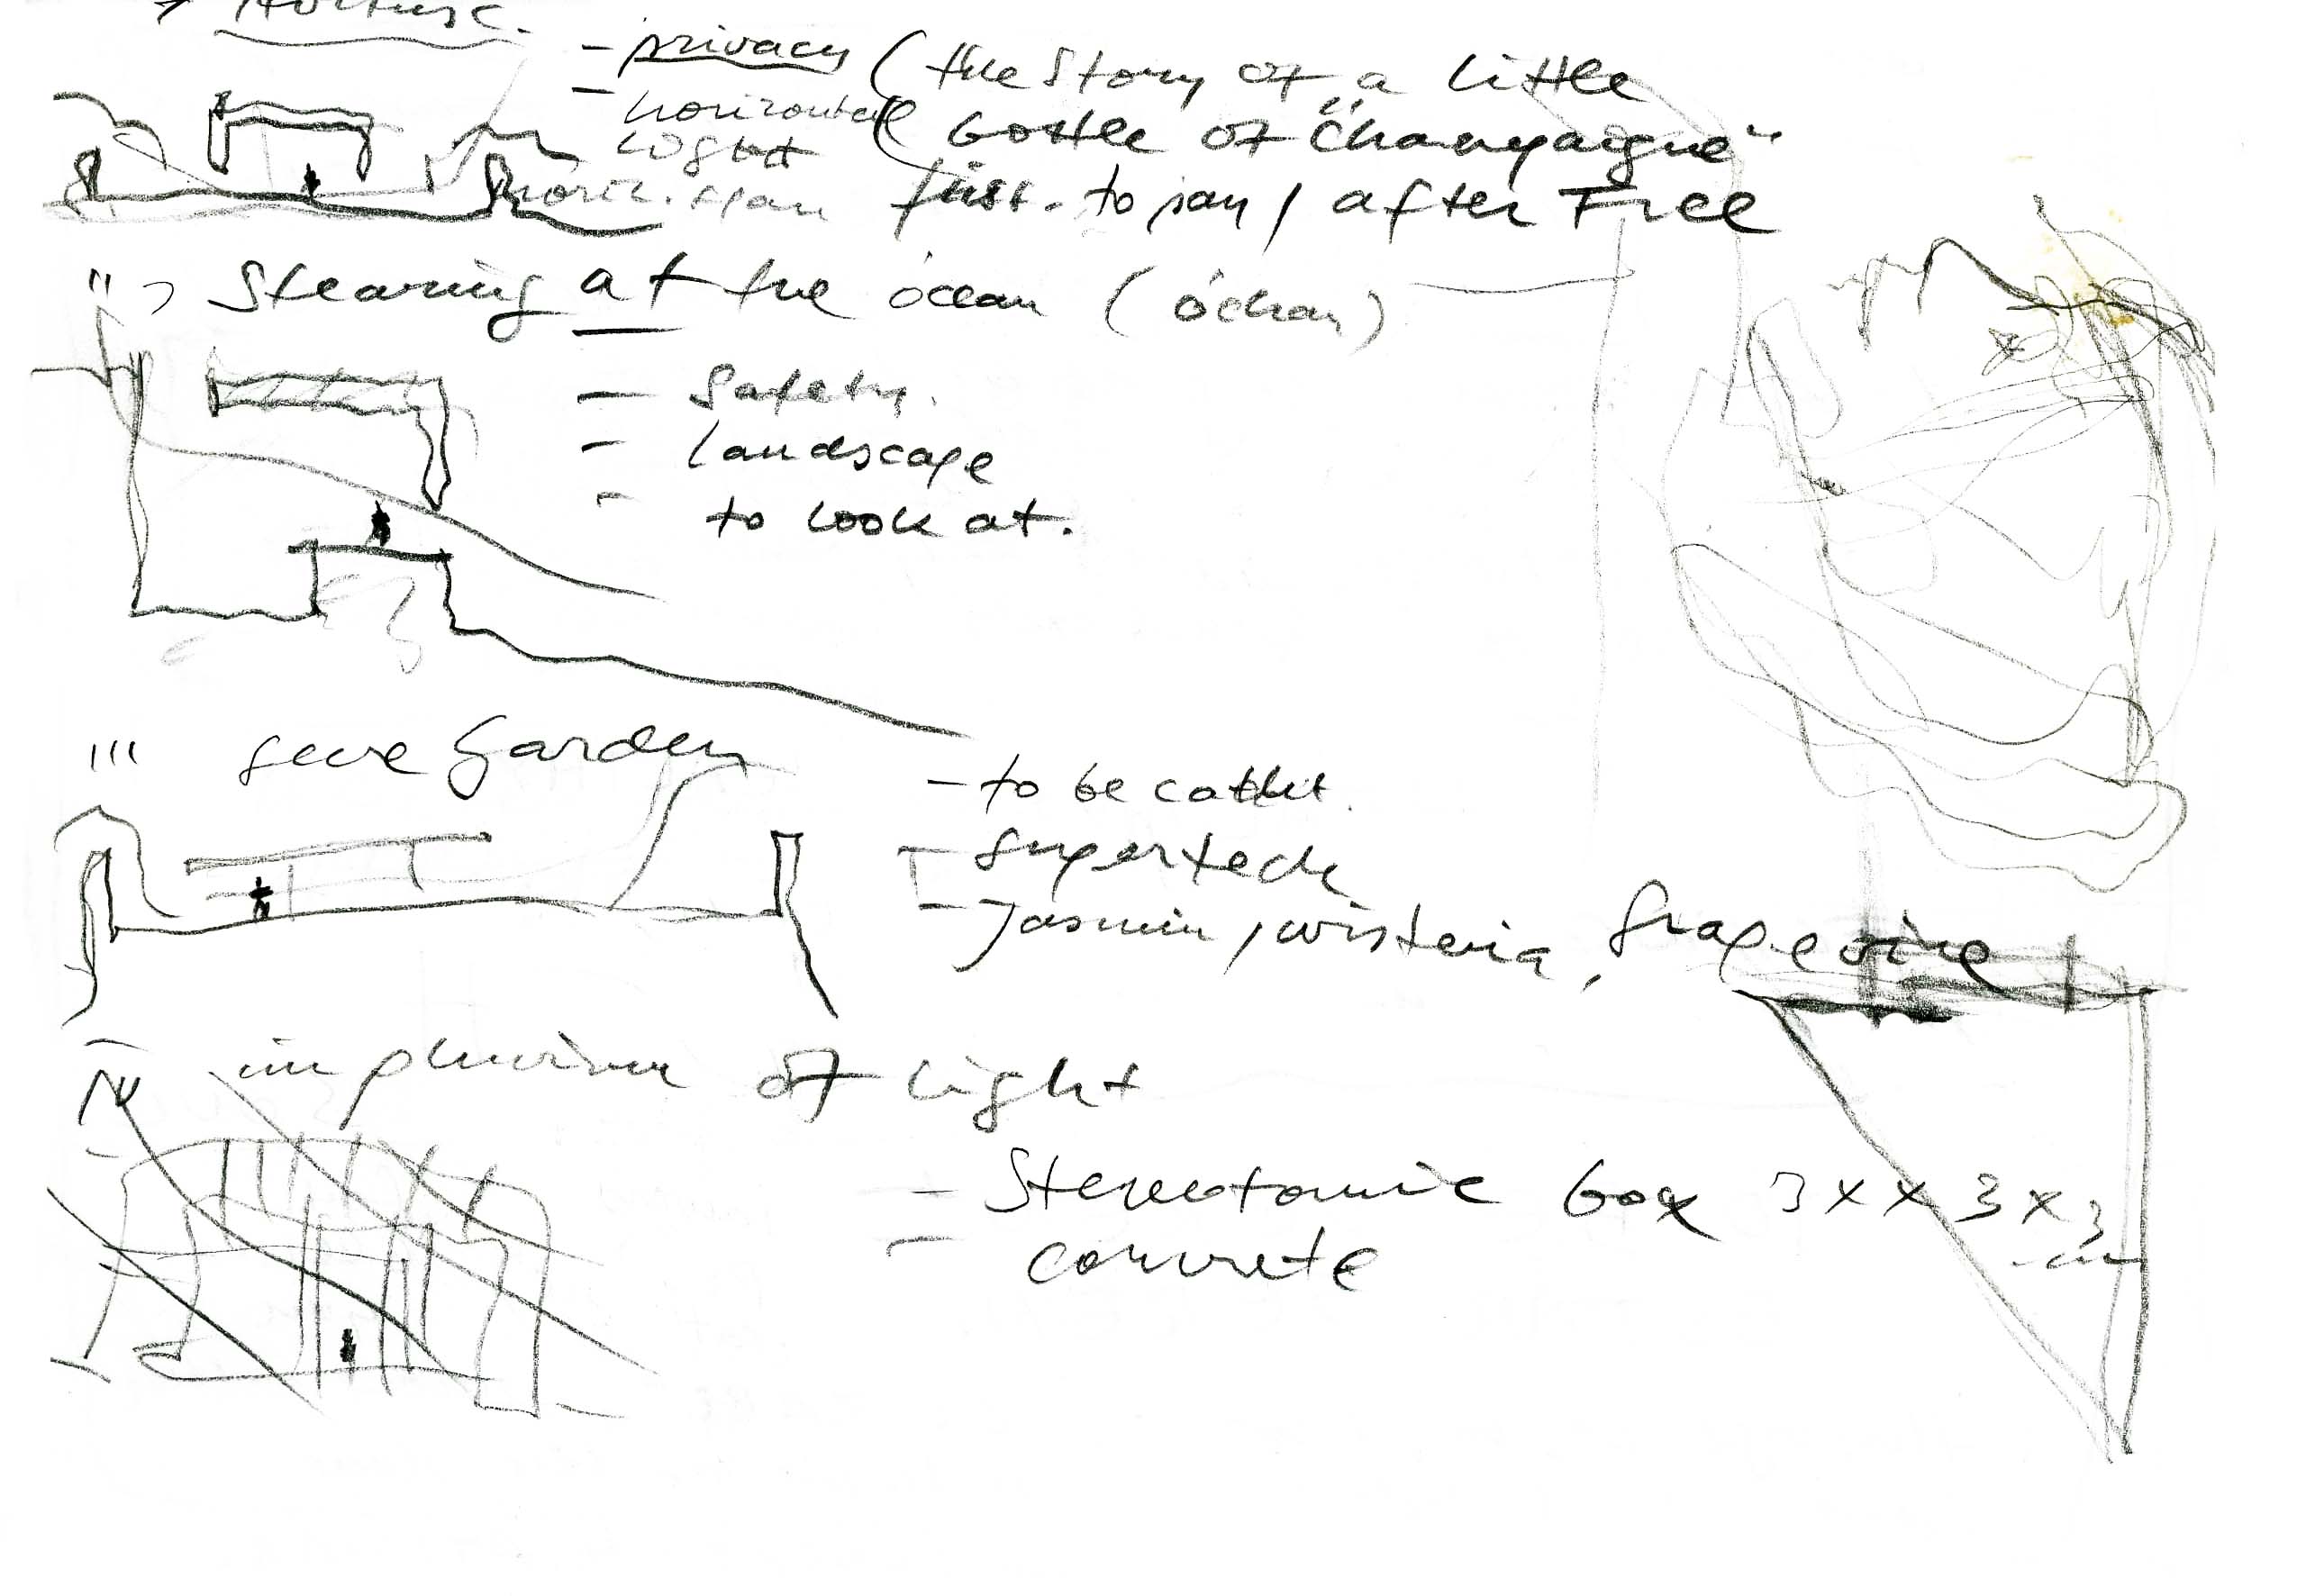 - privacy (the story of a little
- horizontal ( bottle of "Champaigne"
light
first. to pay / after Free
" > Stearing at the ocean ( óchan )
- Safety.
- landscape
- to look at.
''' Garden
- to be
- supertech
- Jasmin, wisteria, grapevine
IV impluvium of light
- Stereotomic box 3 x x 3 x 3
- concrete